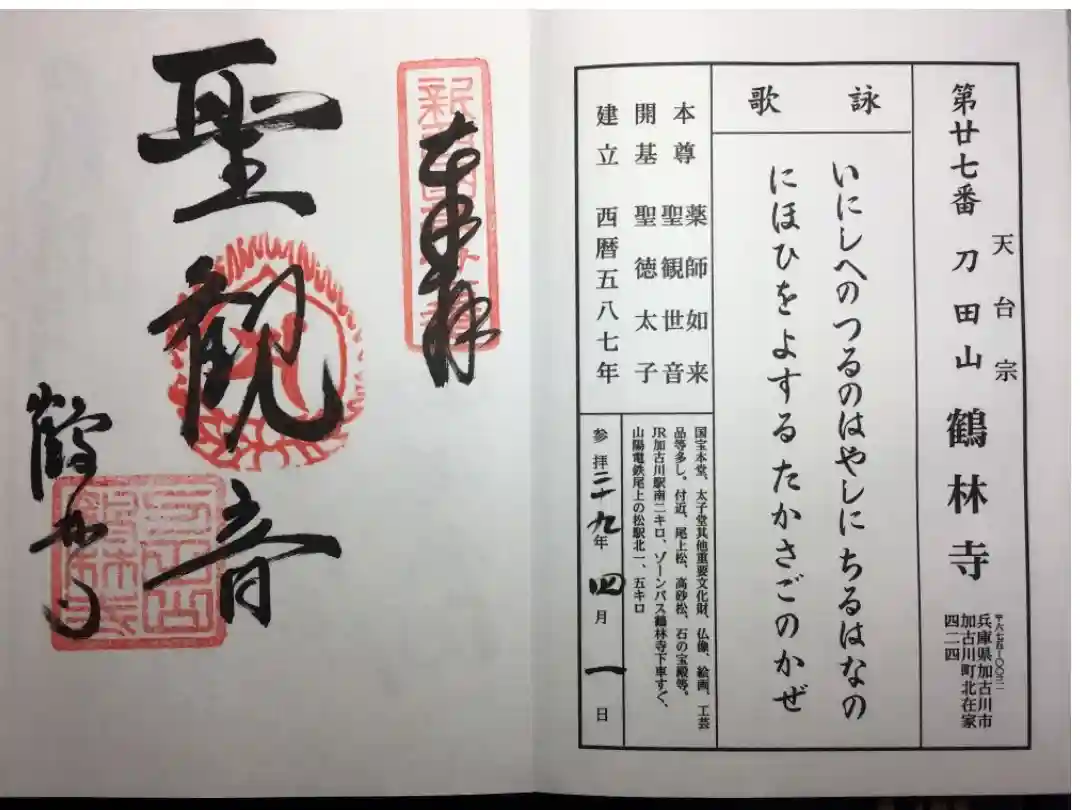 第廿七番 刀田山 鶴林寺
天台宗
〒六七五-〇〇三一
兵庫県加古川市
加古川町北在家
四二四
詠歌
いにしへのつるのはやしにちるはなの
にほひをよするたかさごのかぜ
本尊 薬師如来
聖観世音
開基 聖徳太子
建立 西暦五八七年
国宝本堂、太子堂其他重要文化財、仏像、絵画、工芸
品等多し。付近、尾上松、高砂松、石の宝殿等。
JR加古川駅南二キロ、ゾーンバス鶴林寺下車すぐ、
山陽電鉄尾上の松駅北一、五キロ
参拝二十九年四月一日
奉拝
聖観音
鶴林寺